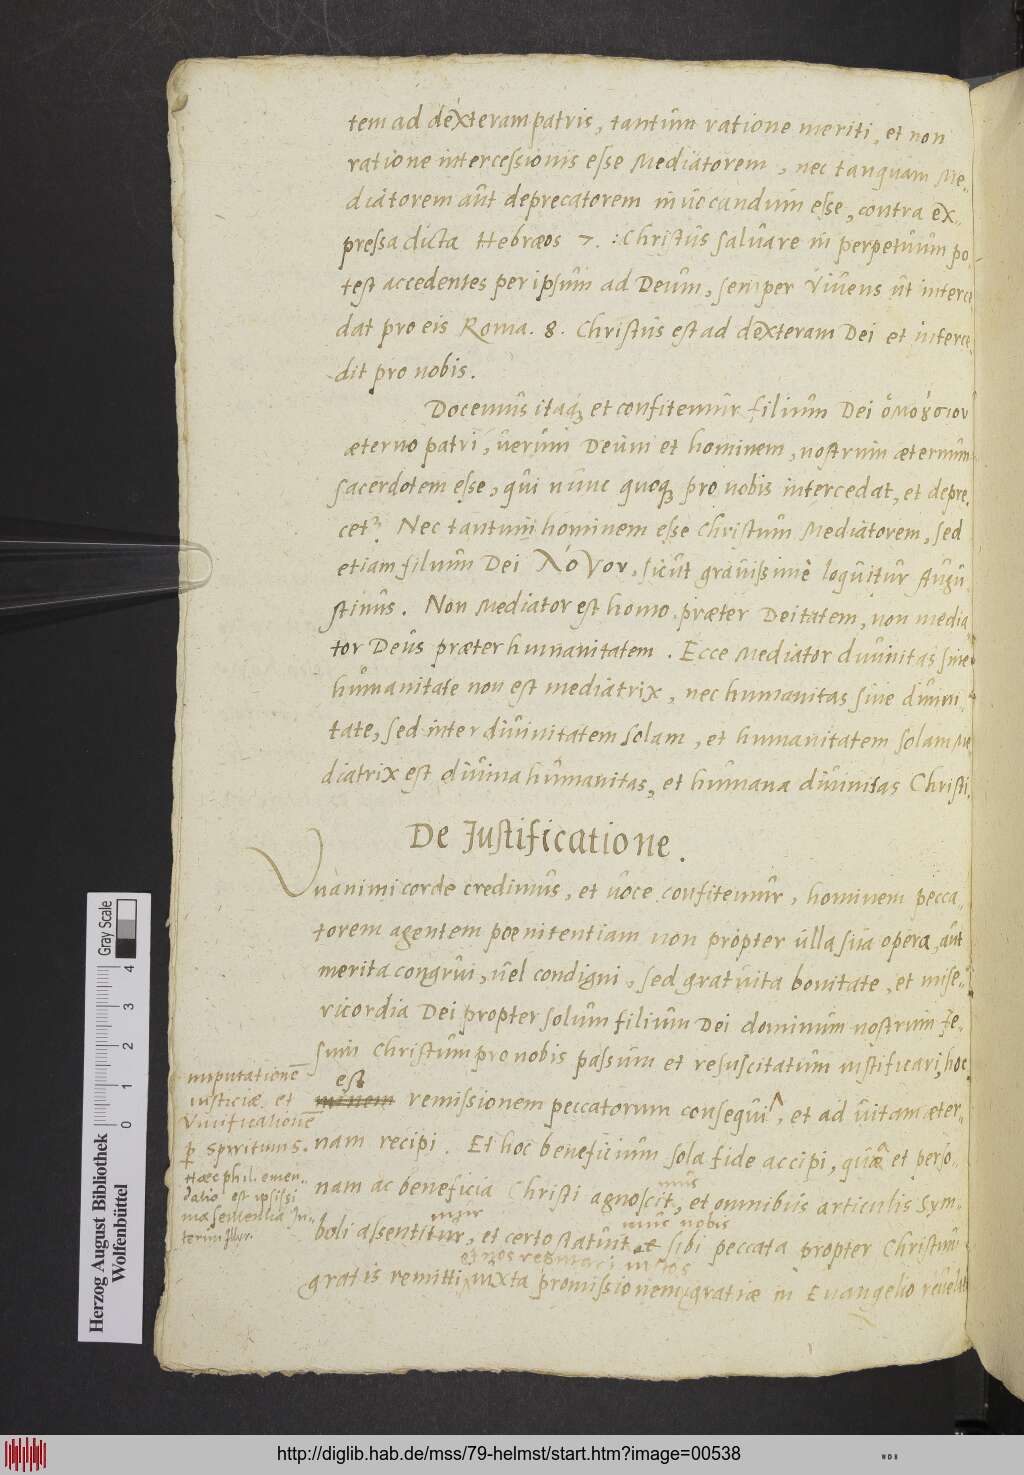 tem ad dexteram patris, tantùm ratione meriti, et non
ratione intercessionis esse Mediatorem, nec tanquam Me-
diatorem aut deprecatorem invocandum esse, contra ex-
pressa dicta Hebræos 7. : Christus salvare in perpetuum po-
test accedentes per ipsum ad Deum, semper vivens ut interce
dat pro eis Roma. 8. Christus est ad dexteram Dei et interce-
dit pro nobis.
Docemus itaq; et confitemur filium Dei ὁμοȣ́σιον
æterno patri, verum Deum et hominem, nostrum æternum
sacerdotem esse, qui nunc quoq; pro nobis intercedat, et depre-
cet² Nec tantum hominem esse Christum Mediatorem, sed
etiam filium Dei λόγον, sicut gravissimè loquitur Augu-
stinus. Non Mediator est homo præter Deitatem, non media
tor Deus præter humanitatem. Ecce Mediator divinitas sine
humanitate non est mediatrix, nec humanitas sine divini-
tate, sed inter divinitatem solam, et humanitatem solam Me
diatrix est divina humanitas, et humana divinitas Christi.
De Justificatione.
Vnanimi corde credimus, et voce confitemur, hominem pecca-
torem agentem poenitentiam non propter ulla sua opera, aut
merita congrui, vel condigni, sed gratuita bonitate, et mise-
ricordia Dei propter solum filium Dei dominum nostrum Je-
sum Christum pro nobis passum et resuscitatum iustificari, hoc
est
remissionem peccatorum consequi, et ad vitam æter-
nam recipi. Et hoc beneficium sola fide accipi, quæ et perso-
nam ac beneficia Christi agnoscit, et omnibus articulis Sym-
boli assentitur, et certo statuit et sibi peccata propter Christum
gratis remitti, iuxta promissionem gratiæ in Euangelio revela
mus
mur
nunc nobis
et nos
imputationē
iusticiæ et
Vivificationē
p Spiritum S.
Hæc phil. emen-
datio est ipsissi
ma sententia In-